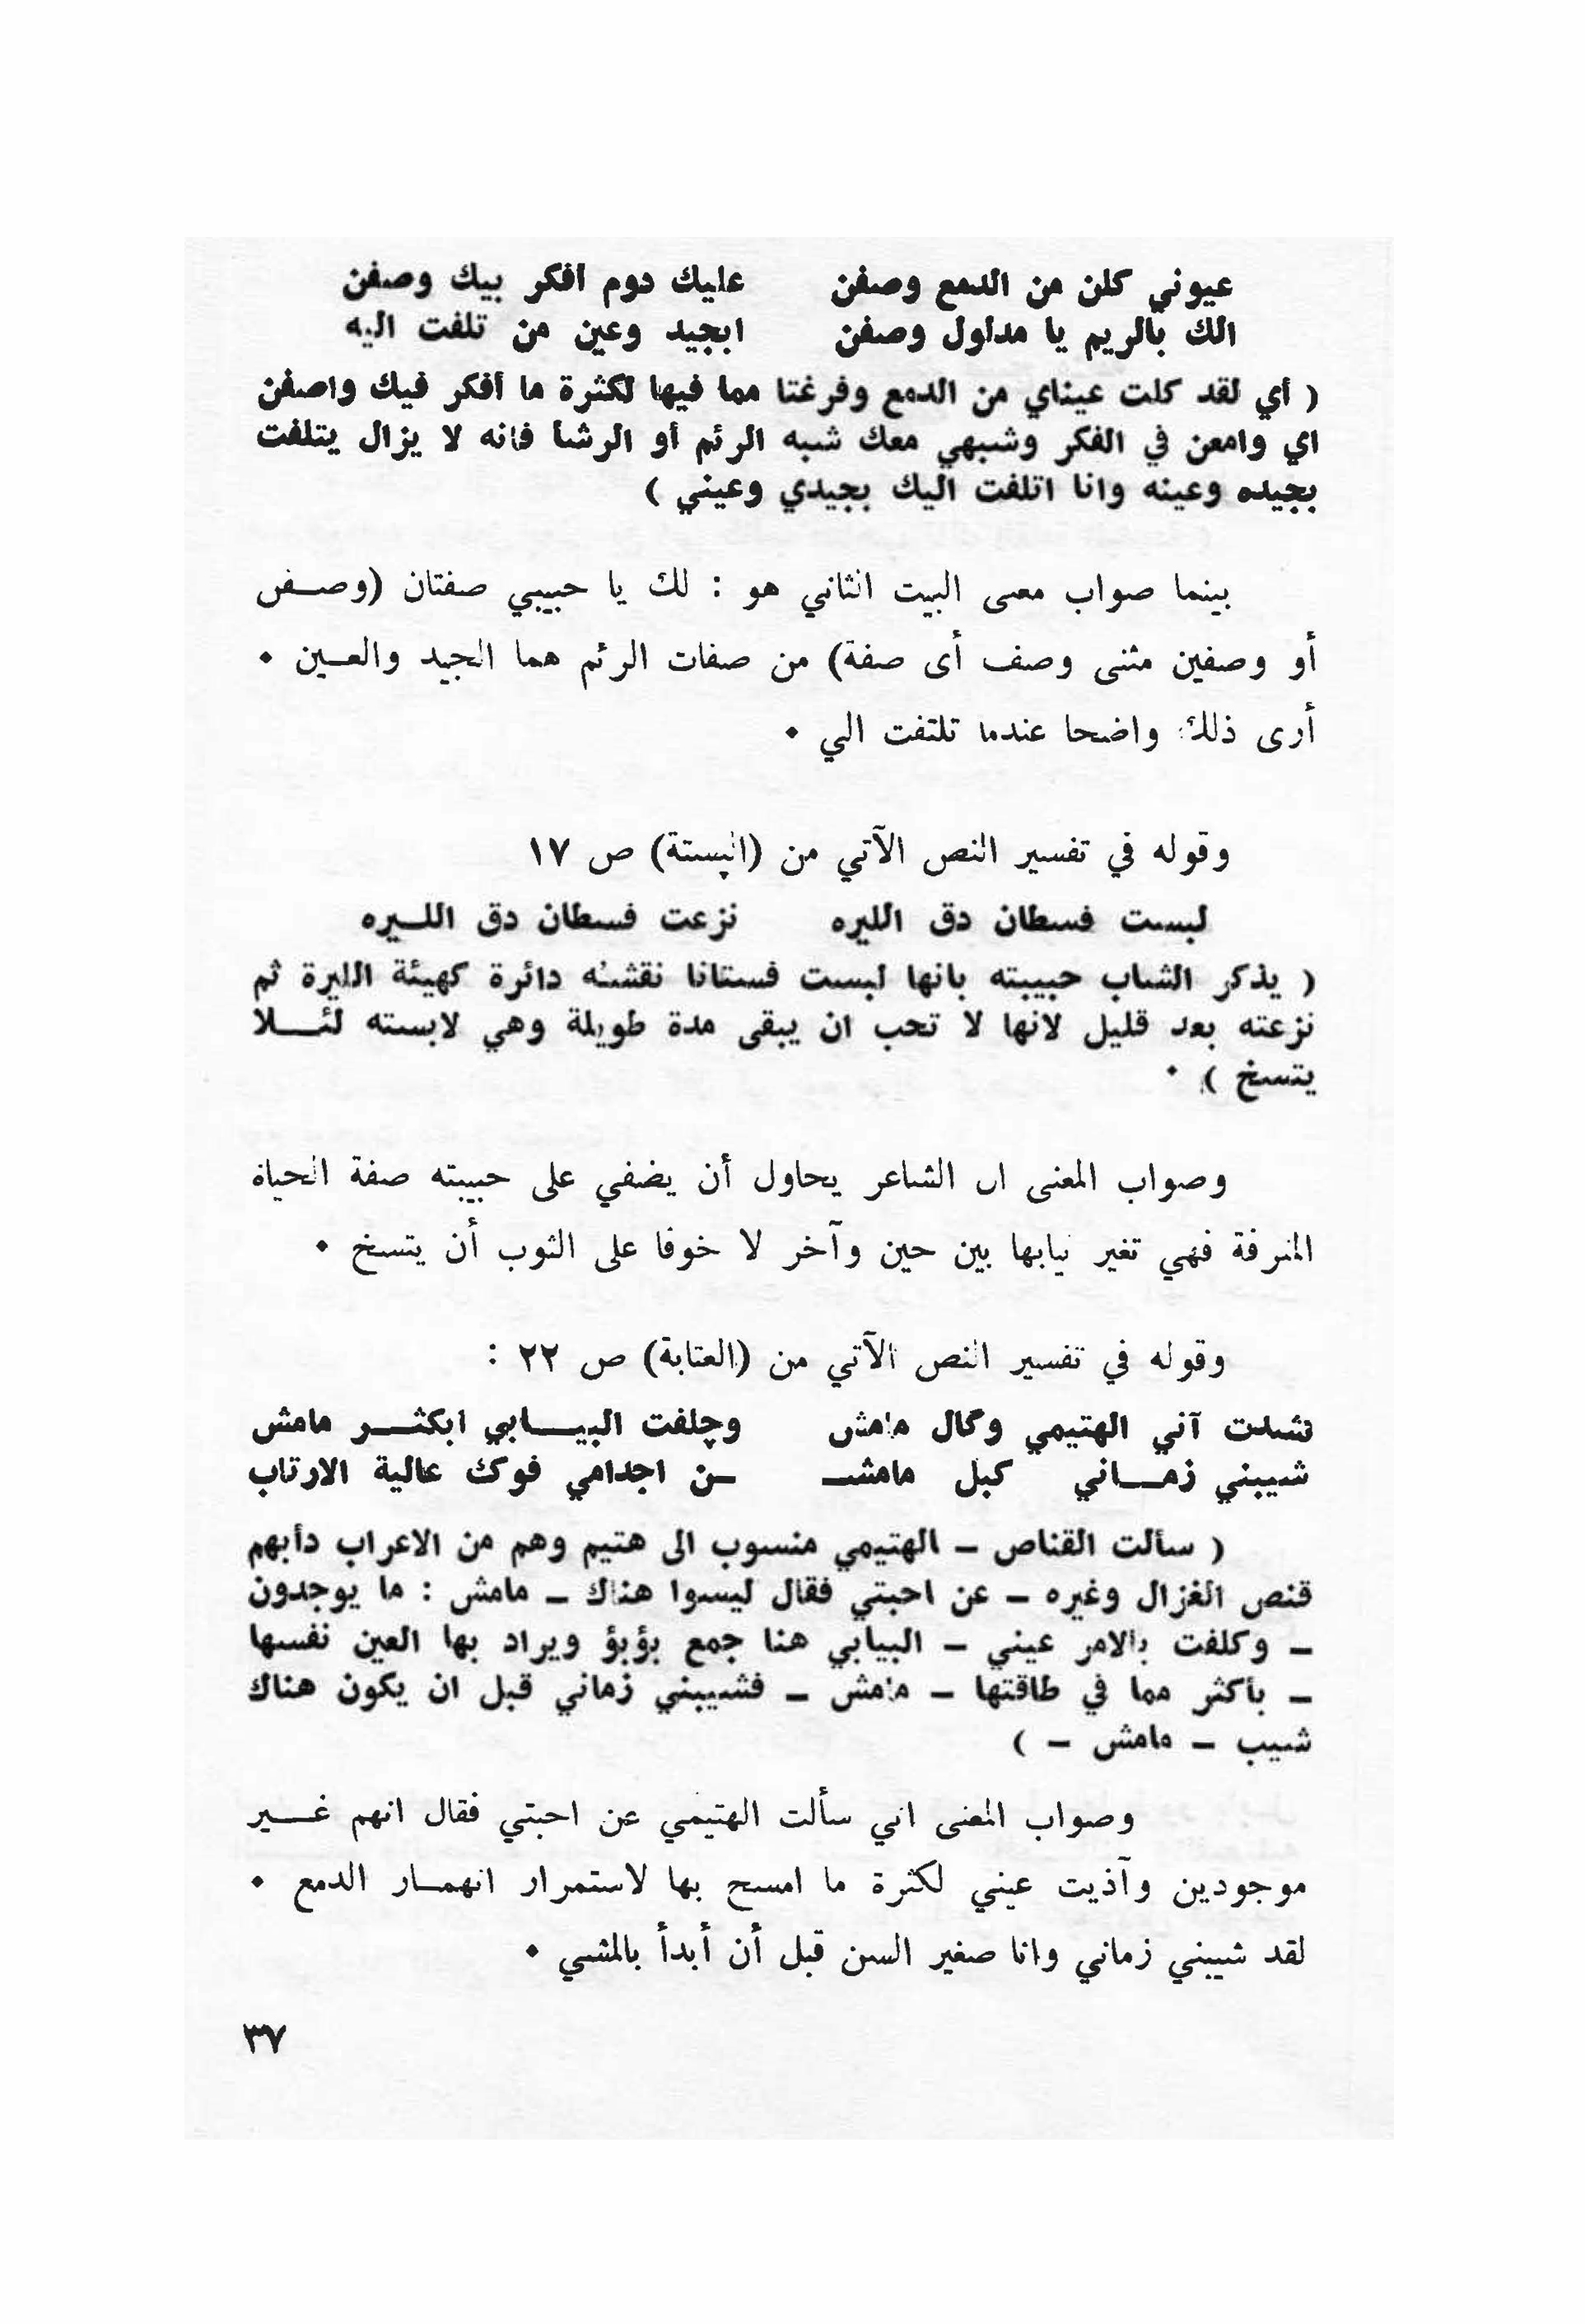 عيوني كلن من الدمع وصفن عليك دوم افكر بيك وصفن
الك بالريم يا مدلول وصفن ابجيد وعين من تلفت اليه
( أي لقد كلت عيناي من الدمع وفرغتا مما فيها لكثرة ما أفكر فيك واصفن
اي وامعن في الفكر وشبهي معك شبه الرئم أو الرشأ فانه لا يزال يتلفت
بجيده وعينه وانا اتلفت اليك بجيدي وعيني )
بينما صواب معنى البيت الثاني هو : لك يا حبيبي صفتان (وصـفن
أو وصفين مثنى وصف أى صفة) من صفات الرئم هما الجيد والعـين ٠
أرى ذلك واضحا عندما تلتفت الي ٠
وقوله في تفسير النص الآتي من (الپستة) ص ١٧
لبست فسطان دق الليره نزعت فسطان دق اللـيره
( يذكر الشاب حبيبته بانها لبست فستانا نقشه دائرة كهيئة الليرة ثم
نزعته بعد قليل لانها لا تحب ان يبقى مدة طويلة وهي لابسته لئـلا
يتسخ ) ٠
وصواب المعنى ان الشاعر يحاول أن يضفي على حبيبته صفة الحياة
المترفة فهي تغير ثيابها بين حين وآخر لا خوفا على الثوب أن يتسخ ٠
وقوله في تفسير النص الآتي من (العتابة) ص ٢٢ :
نشدت آني الهتيمي وگال مامش وچلفت البيـابي ابكثـر مامش
شيبني زمـاني كبل مامشـ ـن اجدامي فوك عالية الارتاب
( سألت القناص – الهتيمي منسوب الى هتيم وهم من الاعراب دأبهم
قنص الغزال وغيره – عن احبتي فقال ليسوا هناك – مامش : ما يوجدون
– وكلفت بالامر عيني – البيابي هنا جمع بؤبؤ ويراد بها العين نفسها
– بأكثر مما في طاقتها – مامش – فشيبني زماني قبل ان يكون هناك
شيب – مامش – )
وصواب المعنى اني سألت الهتيمي عن احبتي فقال انهم غـير
موجودين وآذيت عيني لكثرة ما امسح بها لاستمرار انهمـار الدمع ٠
لقد شيبني زماني وانا صغير السن قبل أن أبدأ بالمشي ٠
٣٧